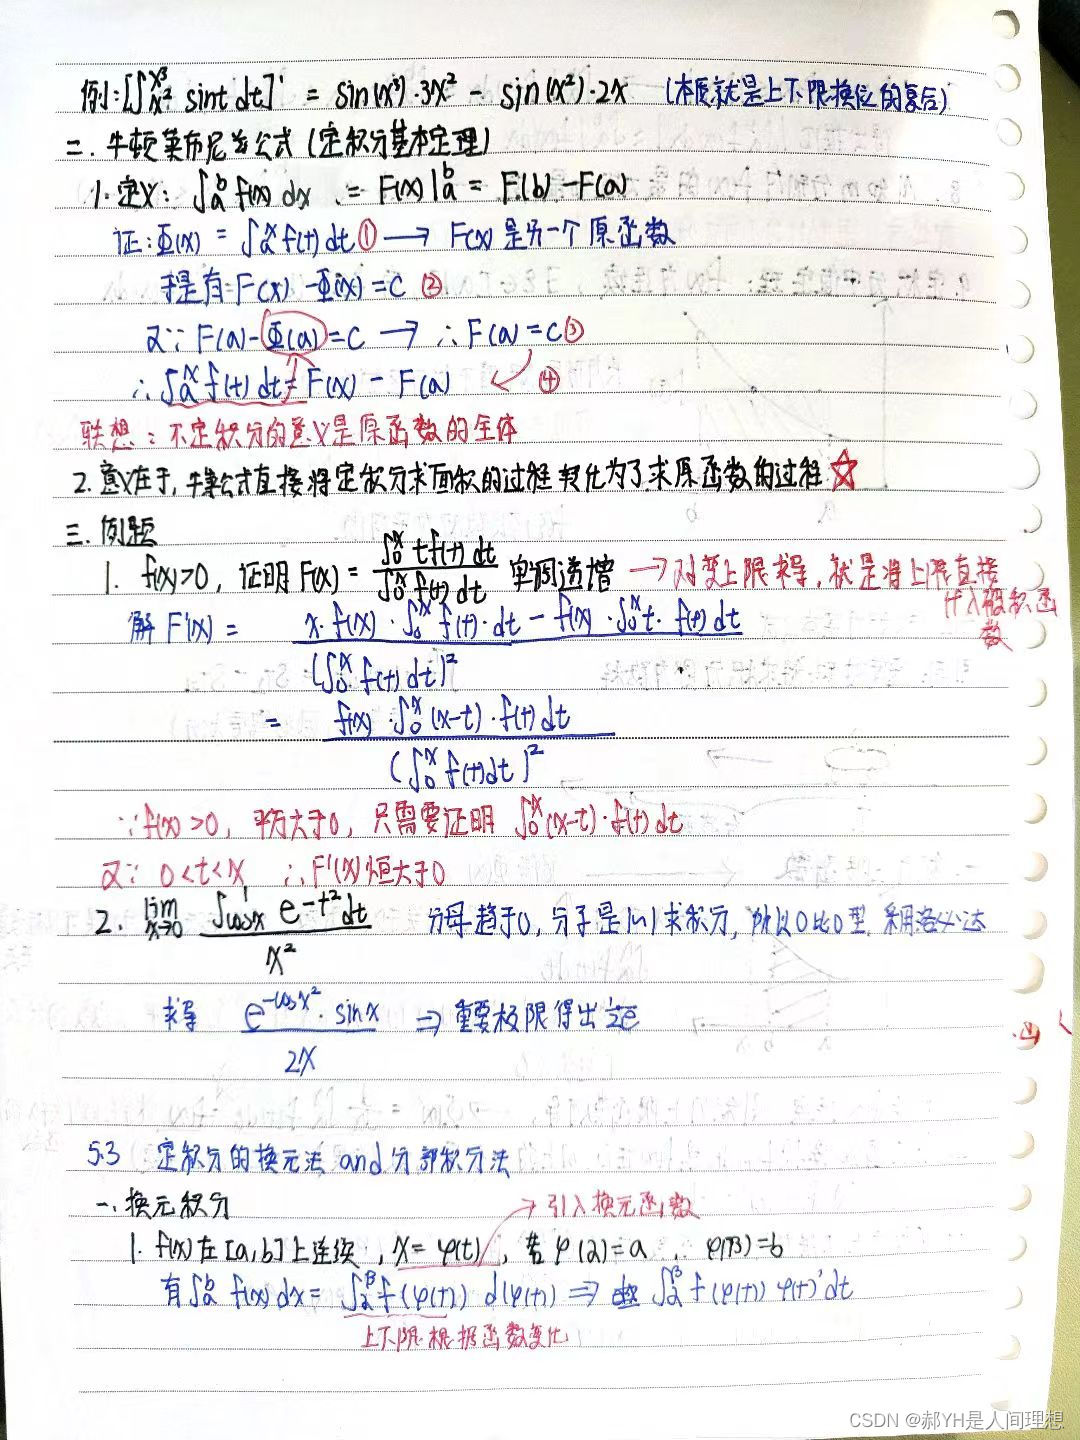 例:[∫_{x²}^{x³} sint dt]' = sin(x³)·3x² - sin(x²)·2x (本质就是上下限换位的复合)
二. 牛顿莱布尼兹公式(定积分基本定理)
1. 定义: ∫_a^b f(x) dx = F(x)|_a^b = F(b)-F(a)
证:Φ(x) = ∫_a^x f(t) dt ① → F(x) 是另一个原函数
于是有 F(x) - Φ(x) = C ②
又∵ F(a)-Φ(a)=C → ∴ F(a)=C ③
∴ ∫_a^x f(t) dt = F(x) - F(a) ④
联想: 不定积分的意义是原函数的全体
2. 意义在于, 牛莱公式直接将定积分求面积的过程转化为了求原函数的过程 ☆
三. 例题
1. f(x)>0, 证明 F(x) = ∫_0^x tf(t) dt / ∫_0^x f(t) dt 单调递增 → 对变上限求导, 就是将上限直接
代入被积函
数
解 F'(x) = x·f(x)·∫_0^x f(t)·dt - f(x)·∫_0^x t·f(t) dt
(∫_0^x f(t) dt)²
= f(x)·∫_0^x (x-t)·f(t) dt
(∫_0^x f(t)dt)²
∵ f(x)>0, 平方大于0, 只需要证明 ∫_0^x (x-t)·f(t) dt
又∵ 0<t<x ∴ F'(x)恒大于0
2. lim_{x→0} ∫_{cosx}^1 e^{-t²} dt / x² 分母趋于0, 分子是1到1求积分, 所以0比0型, 采用洛必达
求导 e^{-cosx²}·sinx / 2x ⇒ 重要极限得出 1/2e
5.3 定积分的换元法 and 分部积分法
一. 换元积分 → 引入换元函数
1. f(x)在[a,b]上连续, x=φ(t), 若φ(α)=a, φ(β)=b
有∫_a^b f(x)dx = ∫_α^β f(φ(t)) d(φ(t)) ⇒ ∫_α^β f(φ(t)) φ(t)'dt
上下限根据函数变化
CSDN @郝YH是人间理想